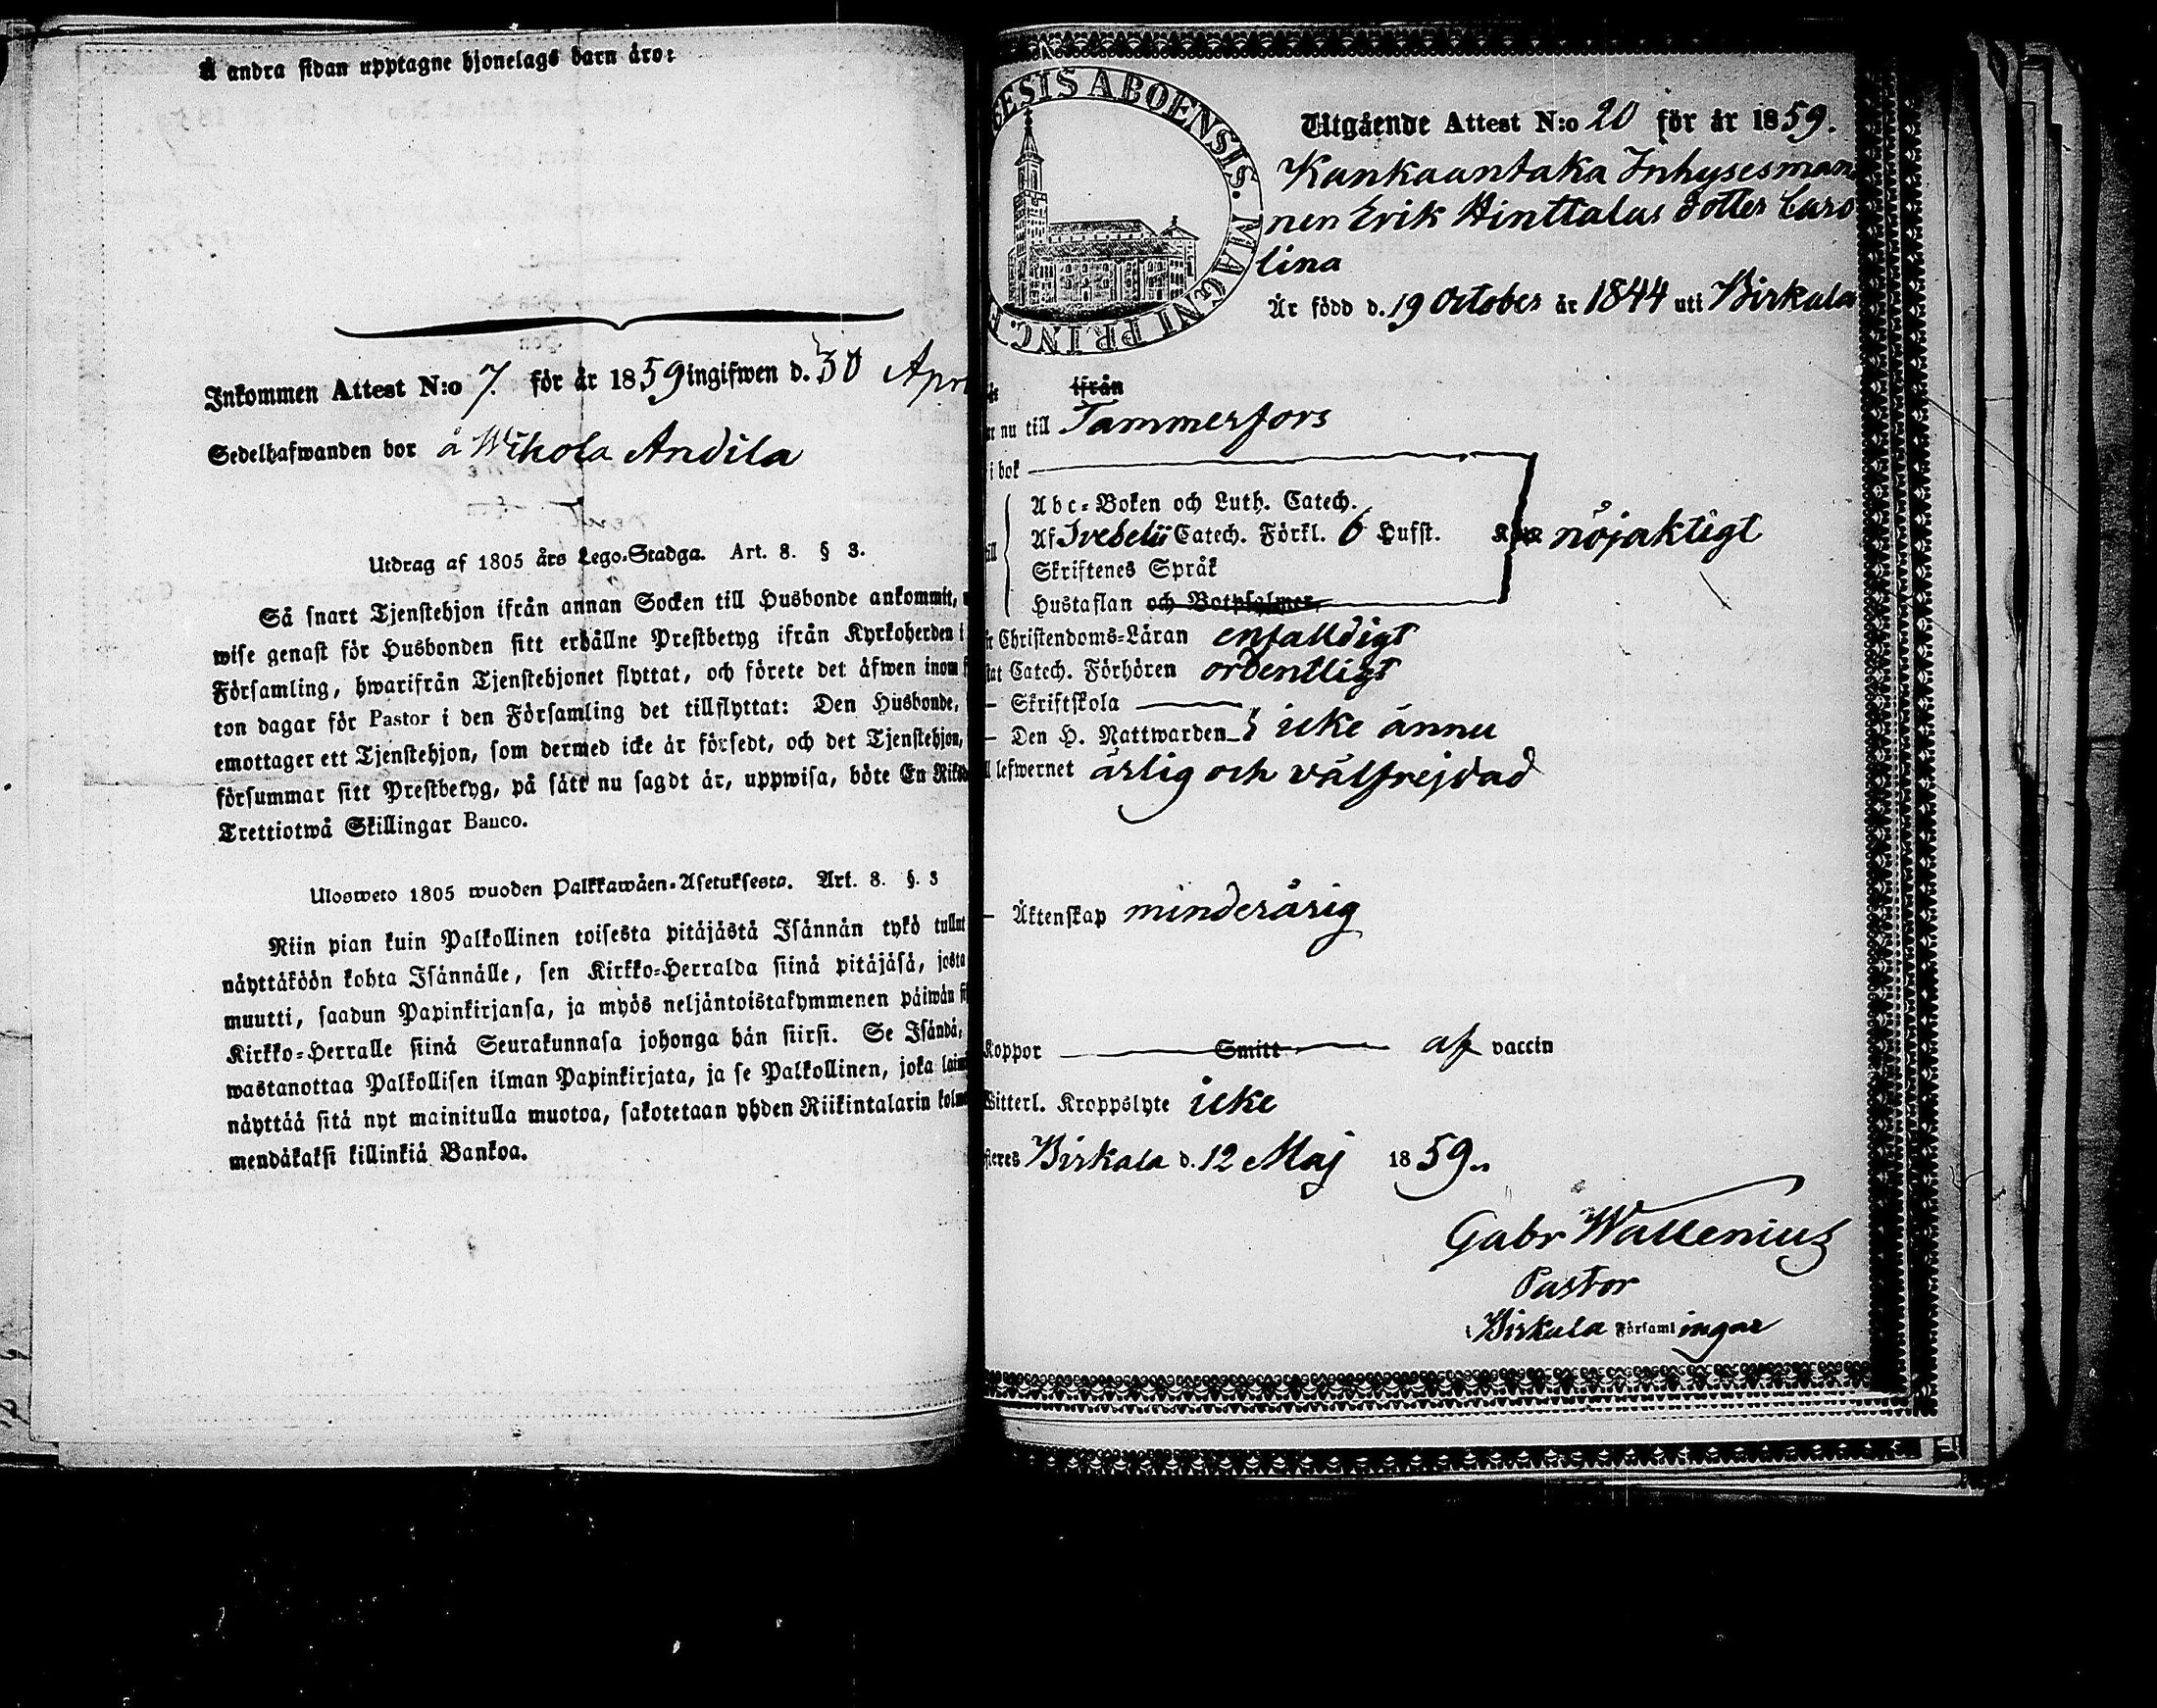 Å andra sidan upptagne hjonelags barn äro:
Inkommen Attest N:o 7. för år 1859 ingifwen d. 30 Apr
Sedelhafwanden bor å Wihola Andila
Utdrag af 1805 års Lego-Stadga. Art. 8. § 3.
Så snart Tjenstehjon ifrån annan Socken till Husbonde ankommit,
wise genast för Husbonden sitt erhållne Prestbetyg ifrån Kyrkoherden i
Församling, hwarifrån Tjenstehjonet flyttat, och förete det äfwen inom
ton dagar för Pastor i den Församling det tillflyttat: Den Husbonde,
emottager ett Tjenstehjon, som dermed icke är försedt, och det Tjenstehjon,
försummar sitt Prestbetyg, på sätt nu sagdt är, uppwisa, böte En Riks
Trettiotwå Skillingar Banco.
Ulosweto 1805 wuoden Palkkawäen-Asetuksesta. Art. 8. §. 3
Niin pian kuin Palkollinen toisesta pitäjästä Isännän tykö tullut
näyttäköön kohta Isännälle, sen Kirkko-Herralda siinä pitäjäsä, josta
muutti, saadun Papinkirjansa, ja myös neljäntoistakymmenen päiwän
Kirkko-Herralle siinä Seurakunnasa johonga hän siirsi. Se Isändä,
wastanottaa Palkollisen ilman Papinkirjata, ja se Palkollinen, joka laim
näyttää sitä nyt mainitulla muotoa, sakotetaan yhden Riikintalarin kolme
mendäkaksi killinkiä Bankoa.
ESIS ABOENSIS. MAGNI PRINC. F
Utgående Attest N:o 20 för år 1859.
Kankaantaka Inhysesman
nen Erik Hinttalas dotter Caro
lina
Är född d. 19 October år 1844 uti Birkala
ifrån
nu till Tammerfors
i bok
Abc-Boken och Luth. Catech.
Af Svebelii Catech. Förkl. 6 Hufst. nöjaktigt
Skriftenes Språk
Hustaflan och Botpsalmer,
Christendoms-Läran enfalldigt
tat Catech. Förhören ordentligt
– Skriftskola
– Den H. Nattwarden icke ännu
lefwernet ärlig och välfrejdad
– Äktenskap minderårig
Koppor Smitt af vaccin
Witterl. Kroppslyte icke
steres Birkala d. 12 Maj 1859.
Gabr Wallenius
Pastor
i Birkala Församlingar